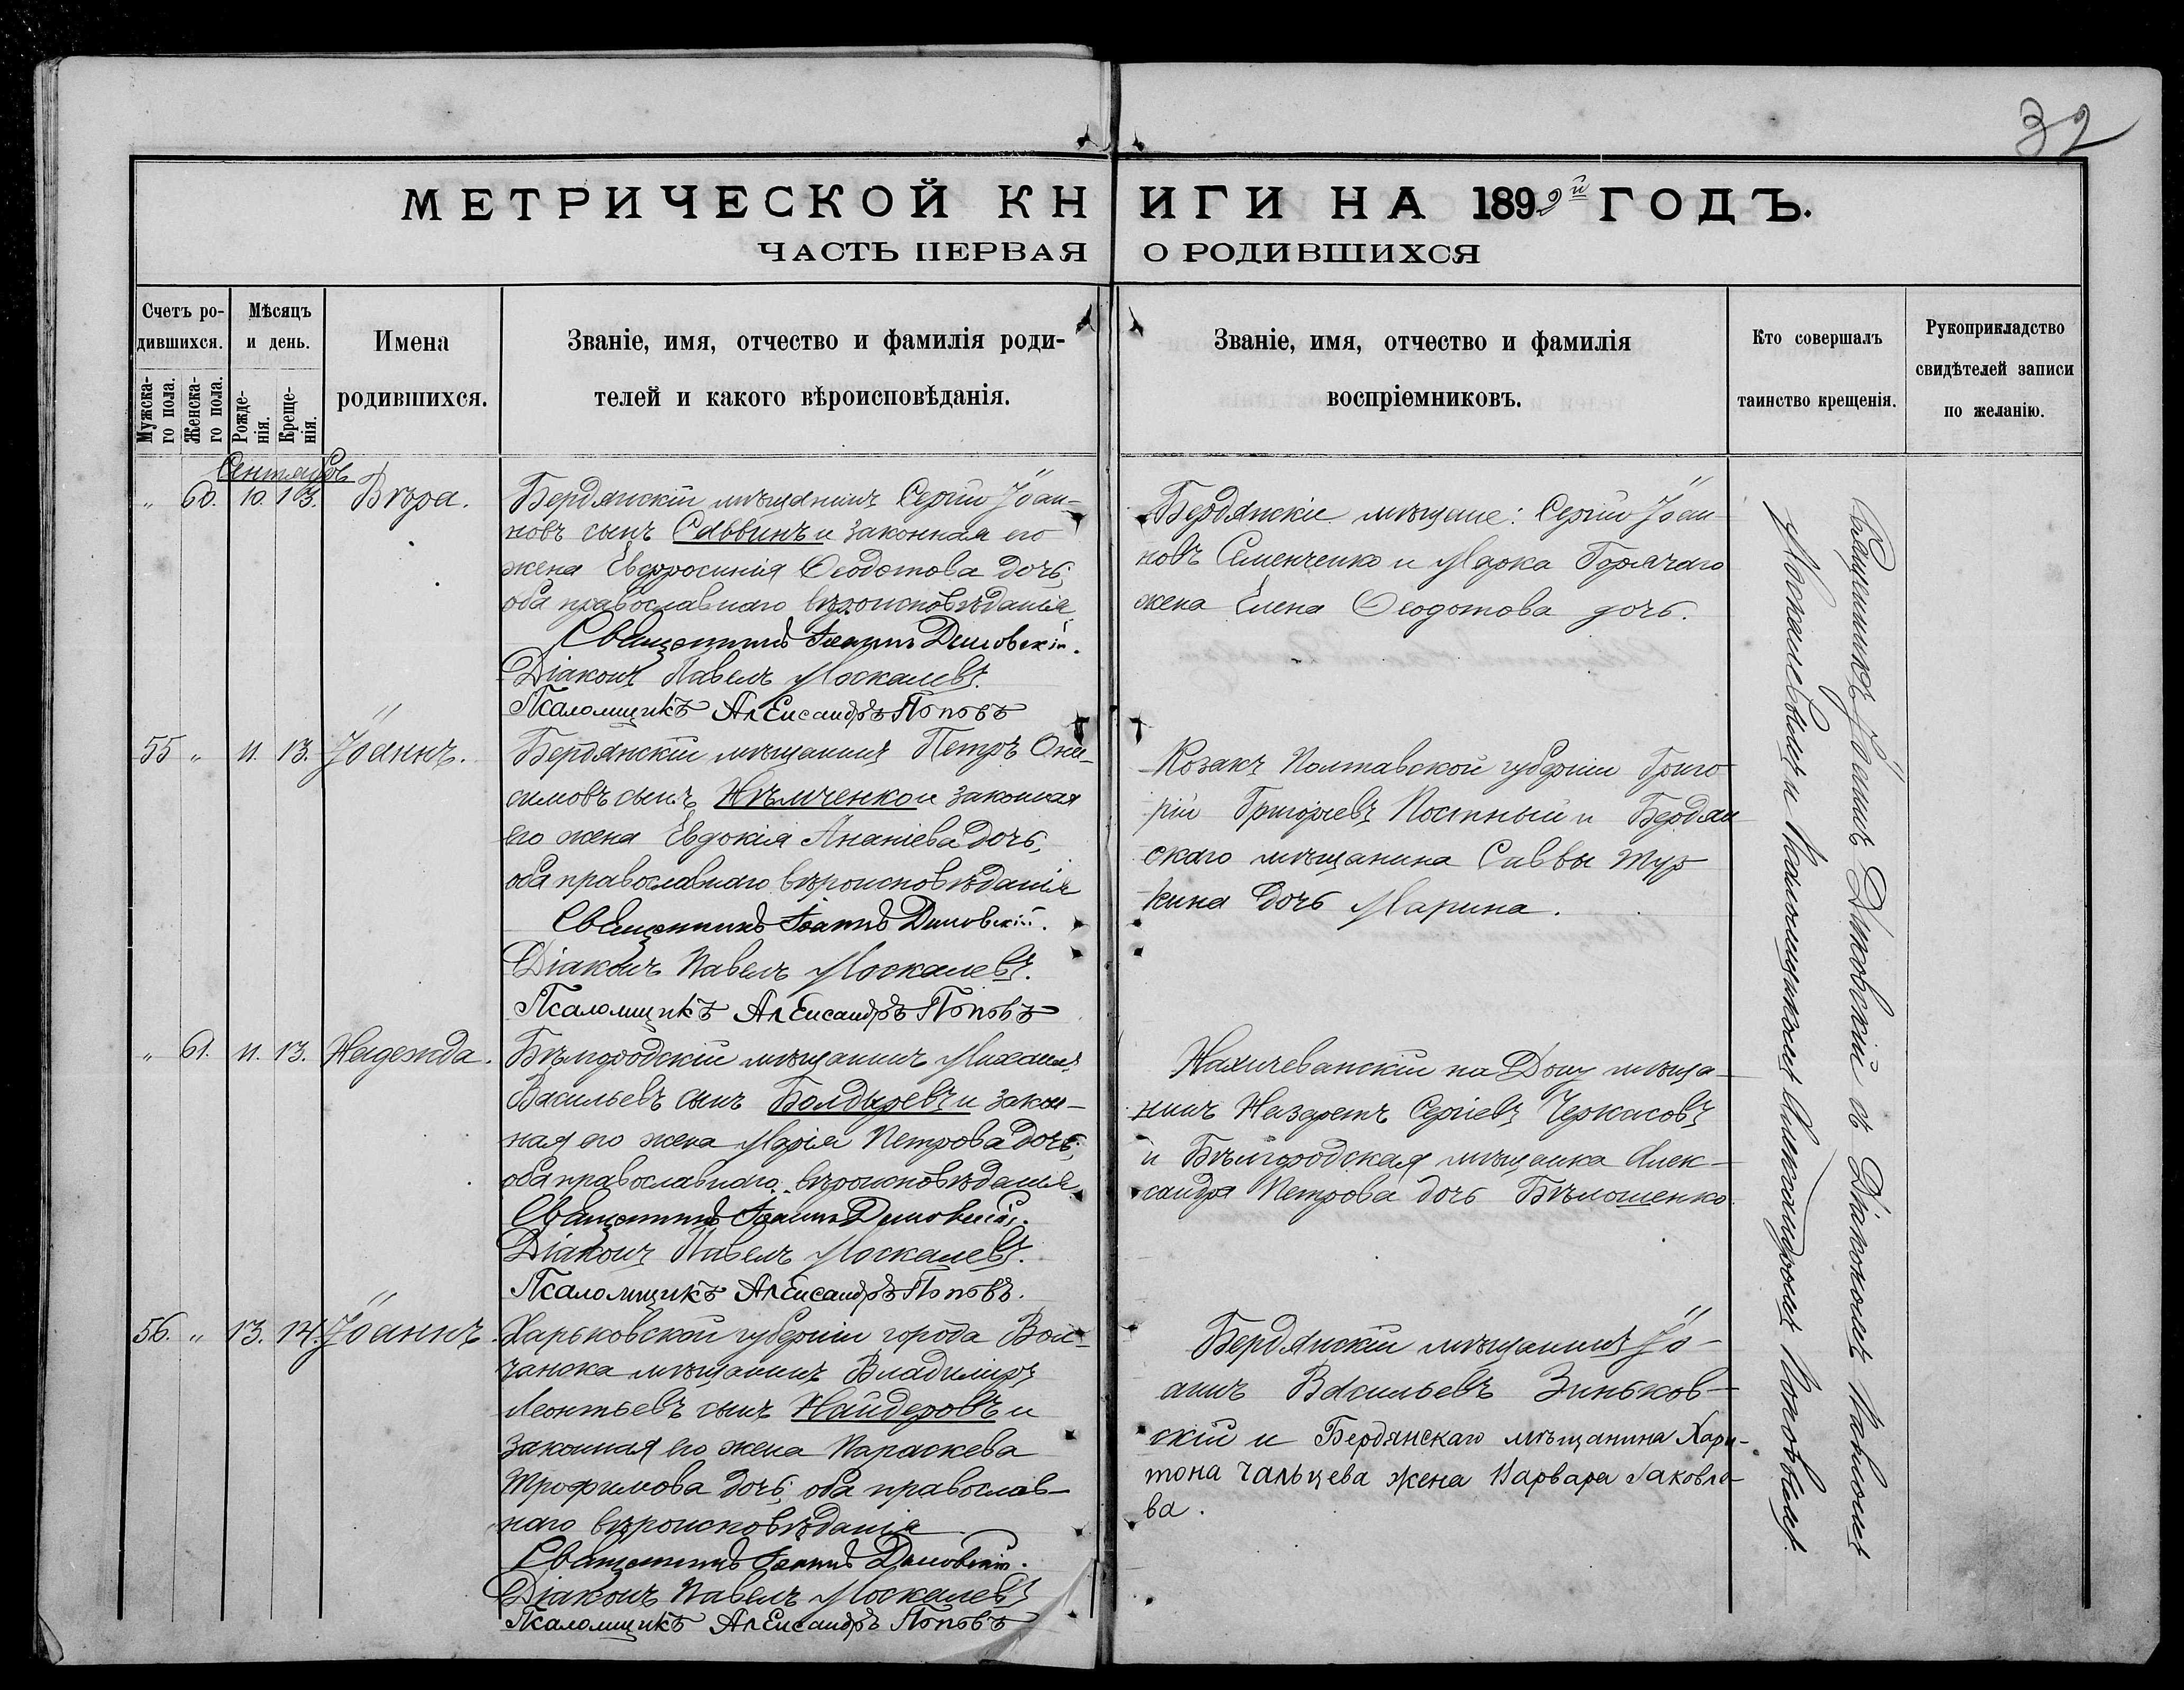 32
МЕТРИЧЕСКОЙ КНИГИ НА 1892й ГОДЪ.
ЧАСТЬ ПЕРВАЯ О РОДИВШИХСЯ
Счетъ ро-
дившихся.
Мужска-
го пола.
Женска-
го пола.
Мѣсяцъ
и день.
Рожде-
нія.
Креще-
нія.
Имена
родившихся.
Званіе, имя, отчество и фамилія роди-
телей и какого вѣроисповѣданія.
Званіе, имя, отчество и фамилія
воспріемниковъ.
Кто совершалъ
таинство крещенія.
Рукоприкладство
свидѣтелей записи
по желанію.
Сентябрь
„ 60. 10. 13. Вѣра.
Бердянскій мѣщанинъ Сергій Іоан-
новъ сынъ Саввинъ и законная его
жена Евфросинія Ѳеодотова дочь,
оба православнаго вѣроисповѣданія
Священникъ Іоаннъ Димовскій.
Діаконъ Павелъ Москалевъ.
Псаломщикъ Александръ Поповъ
Бердянскіе мѣщане: Сергій Іоан-
новъ Семенченко и Марка Горячаго
жена Елена Ѳеодотова дочь.
55 „ 11. 13. Іоаннъ.
Бердянскій мѣщанинъ Петръ Они-
симовъ сынъ Нѣмченко и законная
его жена Евдокія Ананіева дочь,
оба православнаго вѣроисповѣданія
Священникъ Іоаннъ Димовскій.
Діаконъ Павелъ Москалевъ.
Псаломщикъ Александръ Поповъ
Козакъ Полтавской губерніи Григо
рій Григорьевъ Постный и Бердян
скаго мѣщанина Саввы Тур
кина дочь Марина.
„ 61. 11. 13. Надежда.
Бѣлгородскій мѣщанинъ Михаилъ
Васильевъ сынъ Болдыревъ и закон-
ная его жена Марія Петрова дочь,
оба православнаго вѣроисповѣданія
Священникъ Іоаннъ Димовскій.
Діаконъ Павелъ Москалевъ.
Псаломщикъ Александръ Поповъ.
Нахичеванскій на Дону мѣща-
нинъ Назаретъ Сергіевъ Черкасовъ
и Бѣлгородская мѣщанка Алек-
сандра Петрова дочь Бѣлошенко.
56. „ 13. 14. Іоаннъ.
Харьковской губерніи города Вол-
чанска мѣщанинъ Владиміръ
Леонтьевъ сынъ Найдеровъ и
законная его жена Параскева
Трофимова дочь, оба православ-
наго вѣроисповѣданія
Священникъ Іоаннъ Димовскій.
Діаконъ Павелъ Москалевъ
Псаломщикъ Александръ Поповъ
Бердянскій мѣщанинъ Іо-
аннъ Васильевъ Зиньков-
скій и Бердянскаго мѣщанина Хари-
тона Чальцева жена Варвара Іаковле-
ва.
Священникъ Іоаннъ Димовскій съ Діакономъ Павломъ
Москалевымъ и Псаломщикомъ Александромъ Поповымъ.